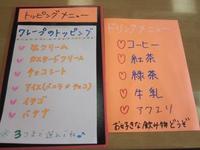 トッピングメニュー
クレープのトッピング
♡ 生クリーム
♡ カスタードクリーム
♡ チョコレート
♡ アイス(バニラ・チョコ)
♡ イチゴ
♡ バナナ
※3つまで選んでね♪
ドリンクメニュー
♡コーヒー
♡紅茶
♡緑茶
♡牛乳
♡アクエリ
お好きな飲み物どうぞ